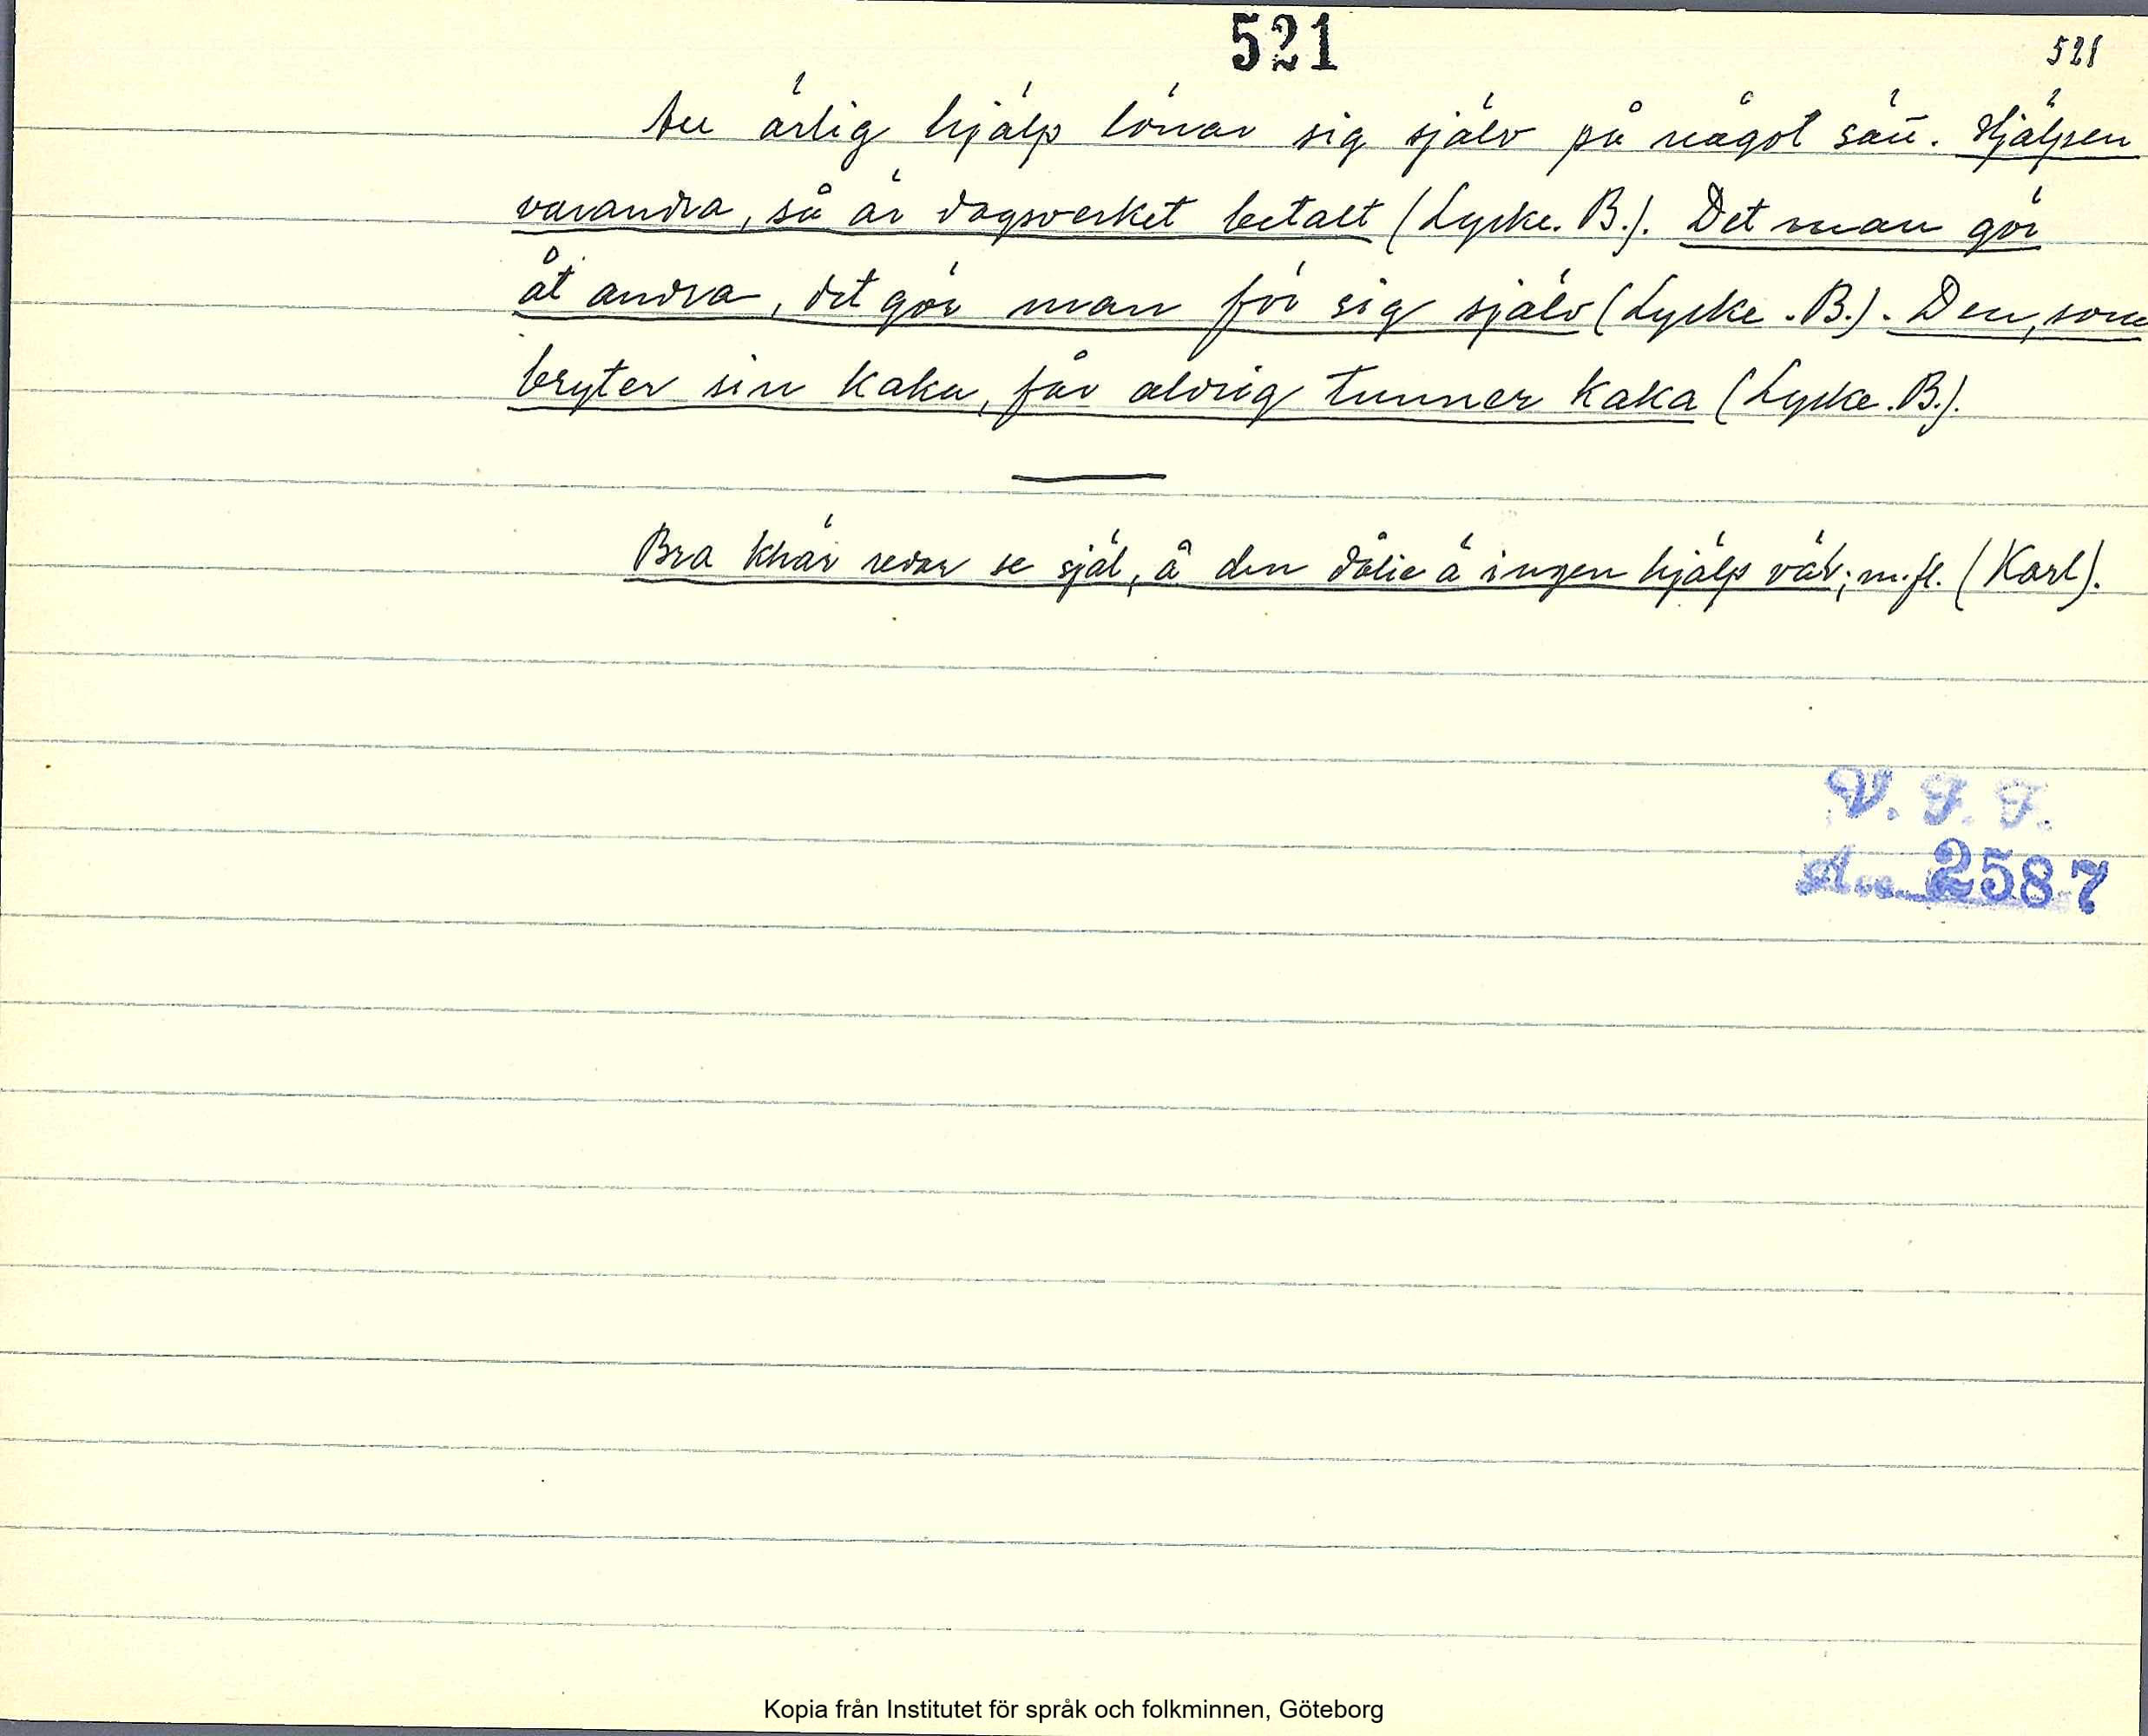 521
521
All ärlig hjälp lönar sig själv på något sätt. Hjälpen
varandra, så är dagsverket betalt (Lycke. B.). Det man gör
åt andra, det gör man för sig själv (Lycke. B.). Den, som
bryter sin kaka, får aldrig tunner kaka (Lycke. B.).
Bra khär redar se själ, å den dålie ä ingen hjälp vär; m.fl. (Karl).
V. F. F.
Acc. 2587
Kopia från Institutet för språk och folkminnen, Göteborg